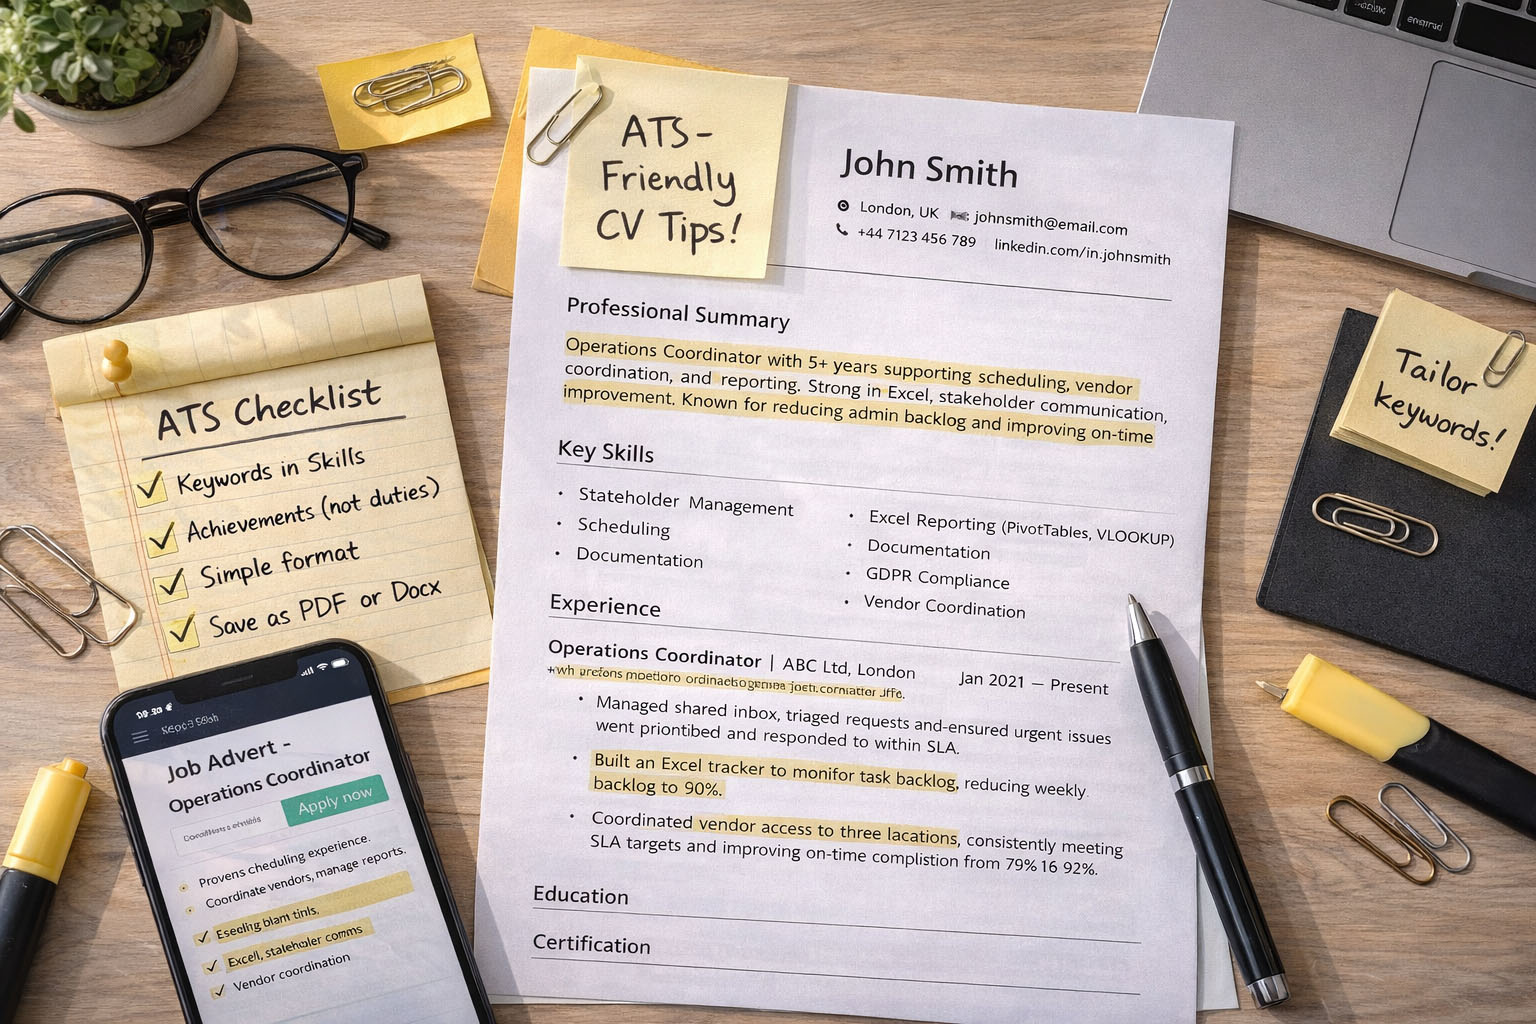 ATS-
Friendly
CV Tips!
John Smith
London, UK johnsmith@email.com
+44 7123 456 789 linkedin.com/in.johnsmith
Professional Summary
Operations Coordinator with 5+ years supporting scheduling, vendor
coordination, and reporting. Strong in Excel, stakeholder communication,
improvement. Known for reducing admin backlog and improving on-time
Key Skills
• Stateholder Management
• Scheduling
• Documentation
• Excel Reporting (PivotTables, VLOOKUP)
• Documentation
• GDPR Compliance
• Vendor Coordination
Experience
Operations Coordinator | ABC Ltd, London Jan 2021 — Present
• Managed shared inbox, triaged requests and-ensured urgent issues
went priontibed and responded to within SLA.
• Built an Excel tracker to monifor task backlog, reducing weekly
backlog to 90%.
• Coordinated vendor access to three lacations, consistently meeting
SLA targets and improving on-time complistion from 79% 16 92%.
Education
Certification
ATS Checklist
✓ Keywords in Skills
✓ Achievements (not duties)
✓ Simple format
✓ Save as PDF or Docx
Job Advert -
Operations Coordinator
Apply now
• Provens cheduling experience.
• Coordinate vendors, manage reports.
✓ Excell, stalehouler comms
✓ Vendor coordination
Tailor
keywords!